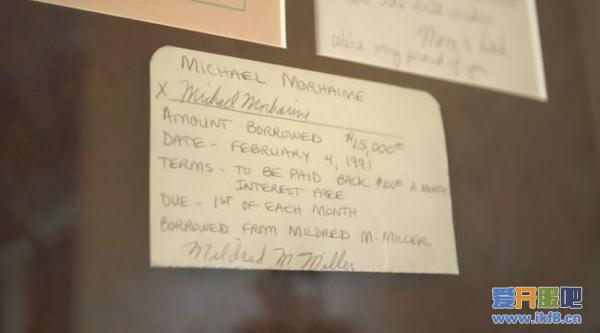 the best wishes
Mom & Dad
We're very proud of you
MICHAEL MORHAIME
X Michael Morhaime
AMOUNT BORROWED $15,000.00
DATE - FEBRUARY 4, 1991
TERMS - TO BE PAID BACK $100.00 A MONTH
INTEREST FREE
DUE - 1ST OF EACH MONTH
BORROWED FROM MILDRED M. MILLER
Mildred M. Miller
爱开服吧
www.ikf8.cn